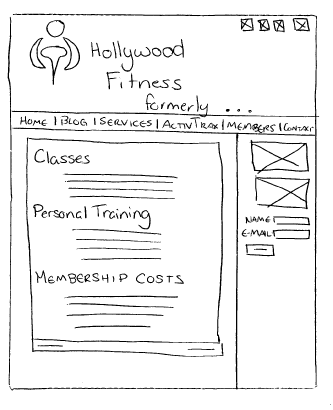 Hollywood
Fitness
formerly ...
HOME | BLOG | SERVICES | ACTIVTRAX | MEMBERS | CONTACT
Classes
Personal Training
MEMBERSHIP COSTS
NAME
E-MAIL